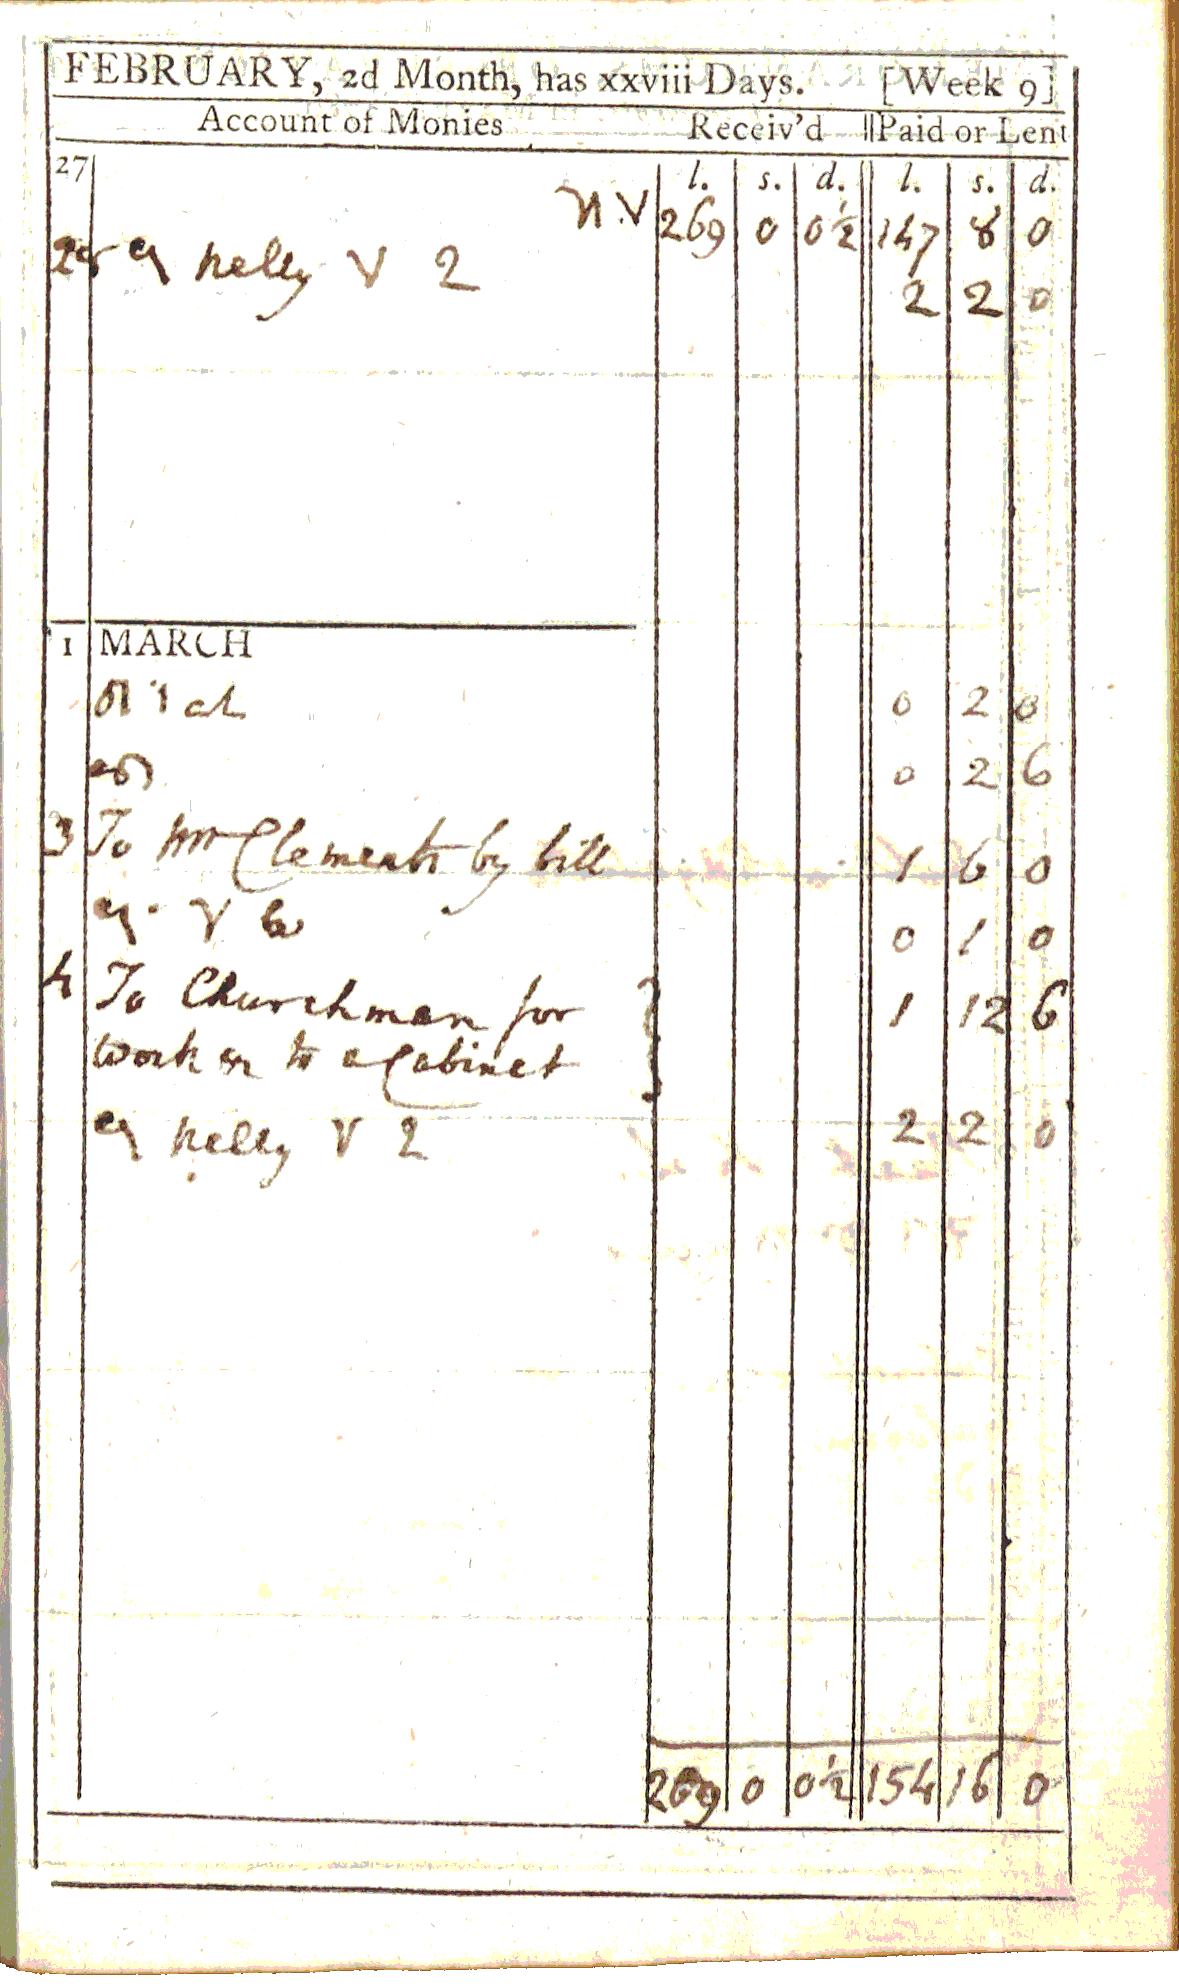 FEBRUARY, 2d Month, has xxviii Days. [Week 9]
Account of Monies Receiv'd Paid or Lent
27 l. s. d. l. s. d.
269 0 0½ 147 8 0
28 kelly V 2 2 2 0
1 MARCH
0 2 0
0 2 6
3 To Mr Clements by bill 1 6 0
0 1 0
4 To Churchman for 1 12 6
work to a Cabinet
kelly V 2 2 2 0
269 0 0½ 154 16 0